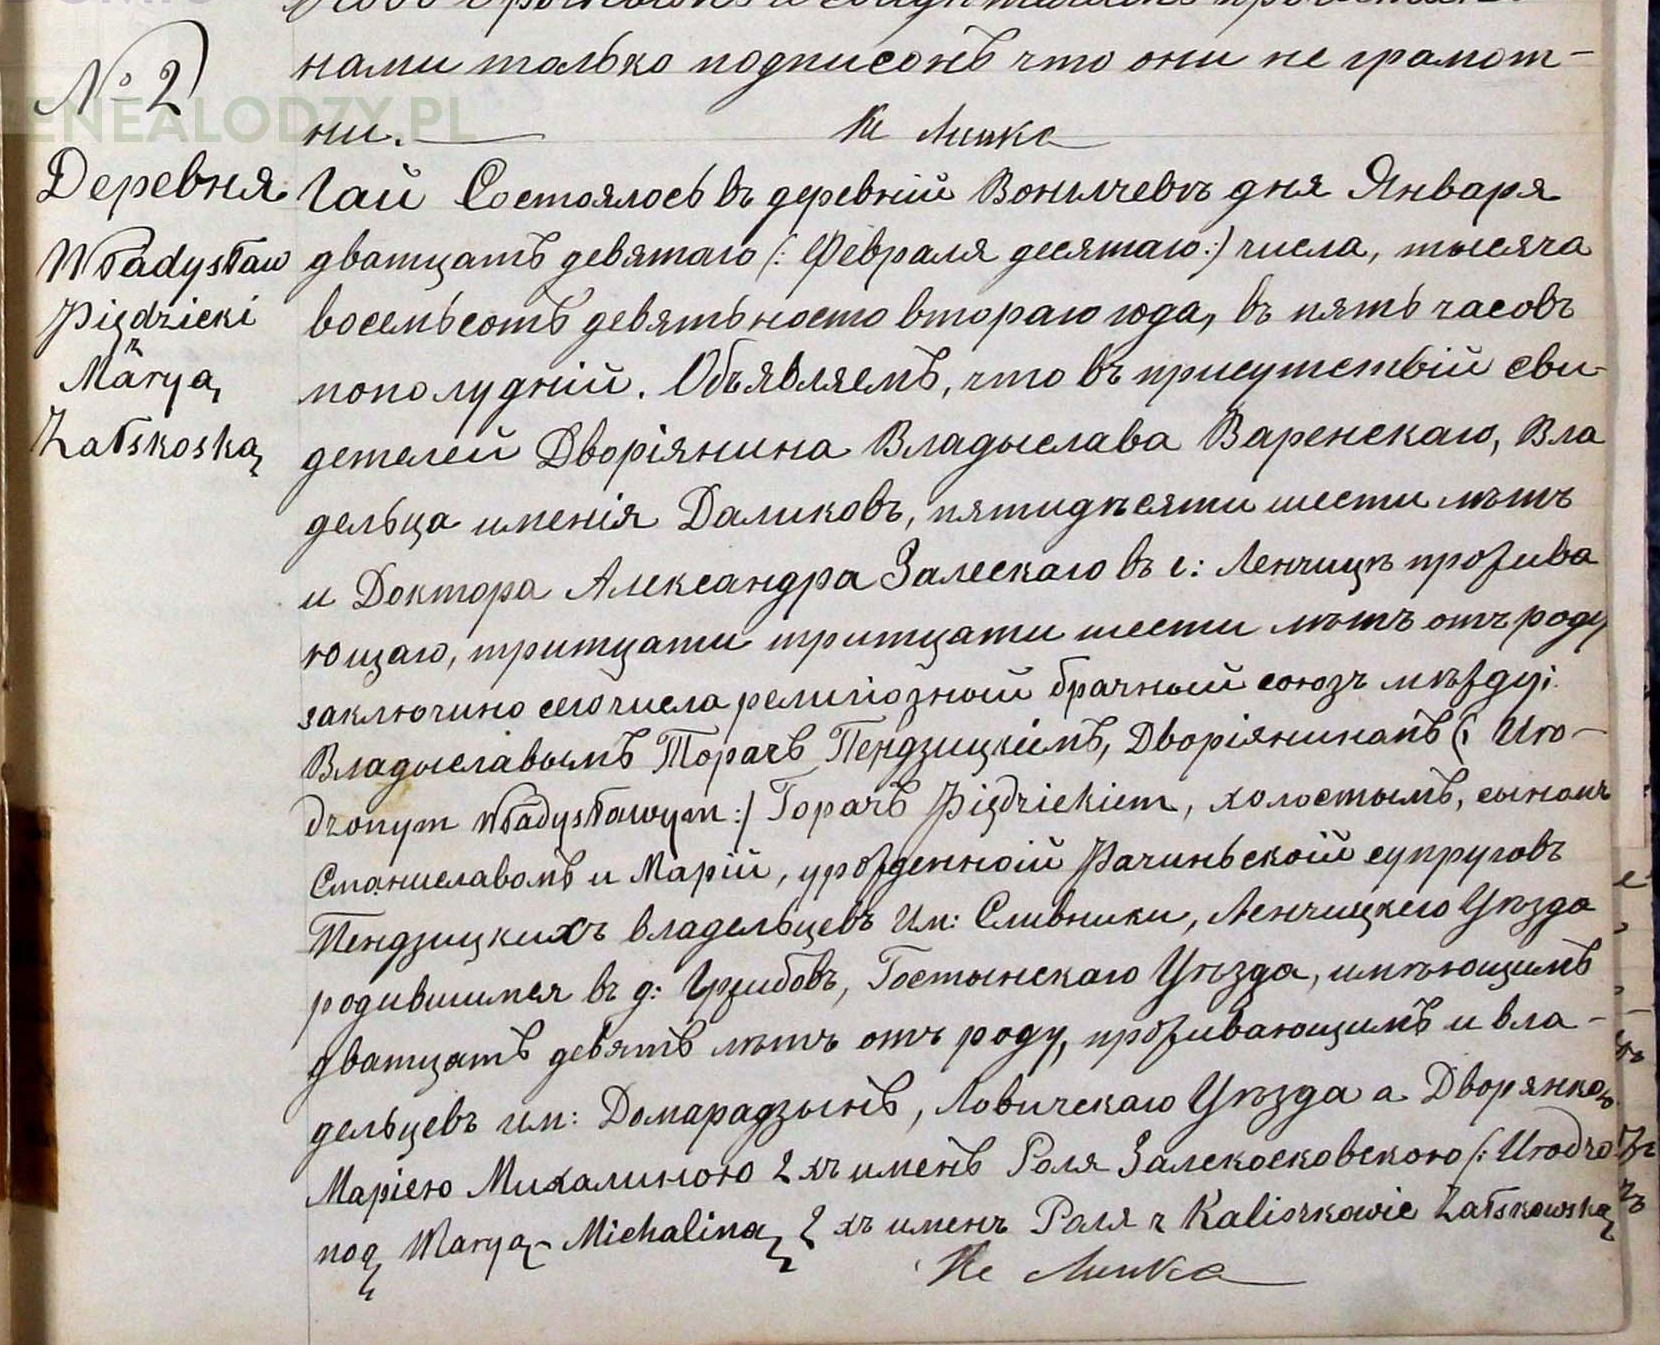 нами только подписонъ что они не грамот-
№ 2
GENEALODZY.PL
ни.
Деревня Гай Состоялось въ деревній Вонилчевъ дня Января
Władysław
дватцать девятаго (: Февраля десятаго:) числа, тысяча
Piędzicki
восемьсотъ девятьносто втораго года, въ пять часовъ
пополудній. Объявляемъ, что въ присутствій сви-
Marya
Załskoska
детелей Дворіянина Владыслава Варенскаго, Вла
дельца именія Даликовъ, пятидъсяти шести лѣтъ
и Доктора Александра Залескаго въ г: Ленчицѣ прожива
ющаго, тритцати тритцати шести лѣтъ отъ роду
заключино сего числа религіозный брачный союзъ мѣжду:
Владыславымъ Торачъ Пендзицкимъ, Дворіяниномъ (: Uro-
dzonym Władysławym :) Торачъ Piędzickiem, холостымъ, сыномъ
Станиславомъ и Марій, урожденной Рачиньской супруговъ
Пендзицкихъ владельцевъ Им: Сливники, Ленчицкего Уѣзда
родившимся въ д: Грзибовъ, Гостынскаго Уѣзда, имѣющимъ
дватцать девять лѣтъ отъ роду, проживающимъ и вла-
дельцевъ им: Домарадзынъ, Ловичскаго Уѣзда а Дворянкою
Маріею Михалиною 2хъ именъ Роля Залскосковскою (: Urodzo
ną Maryą Michaliną 2 хъ именъ Роля z Kaliszkowic Załskowską